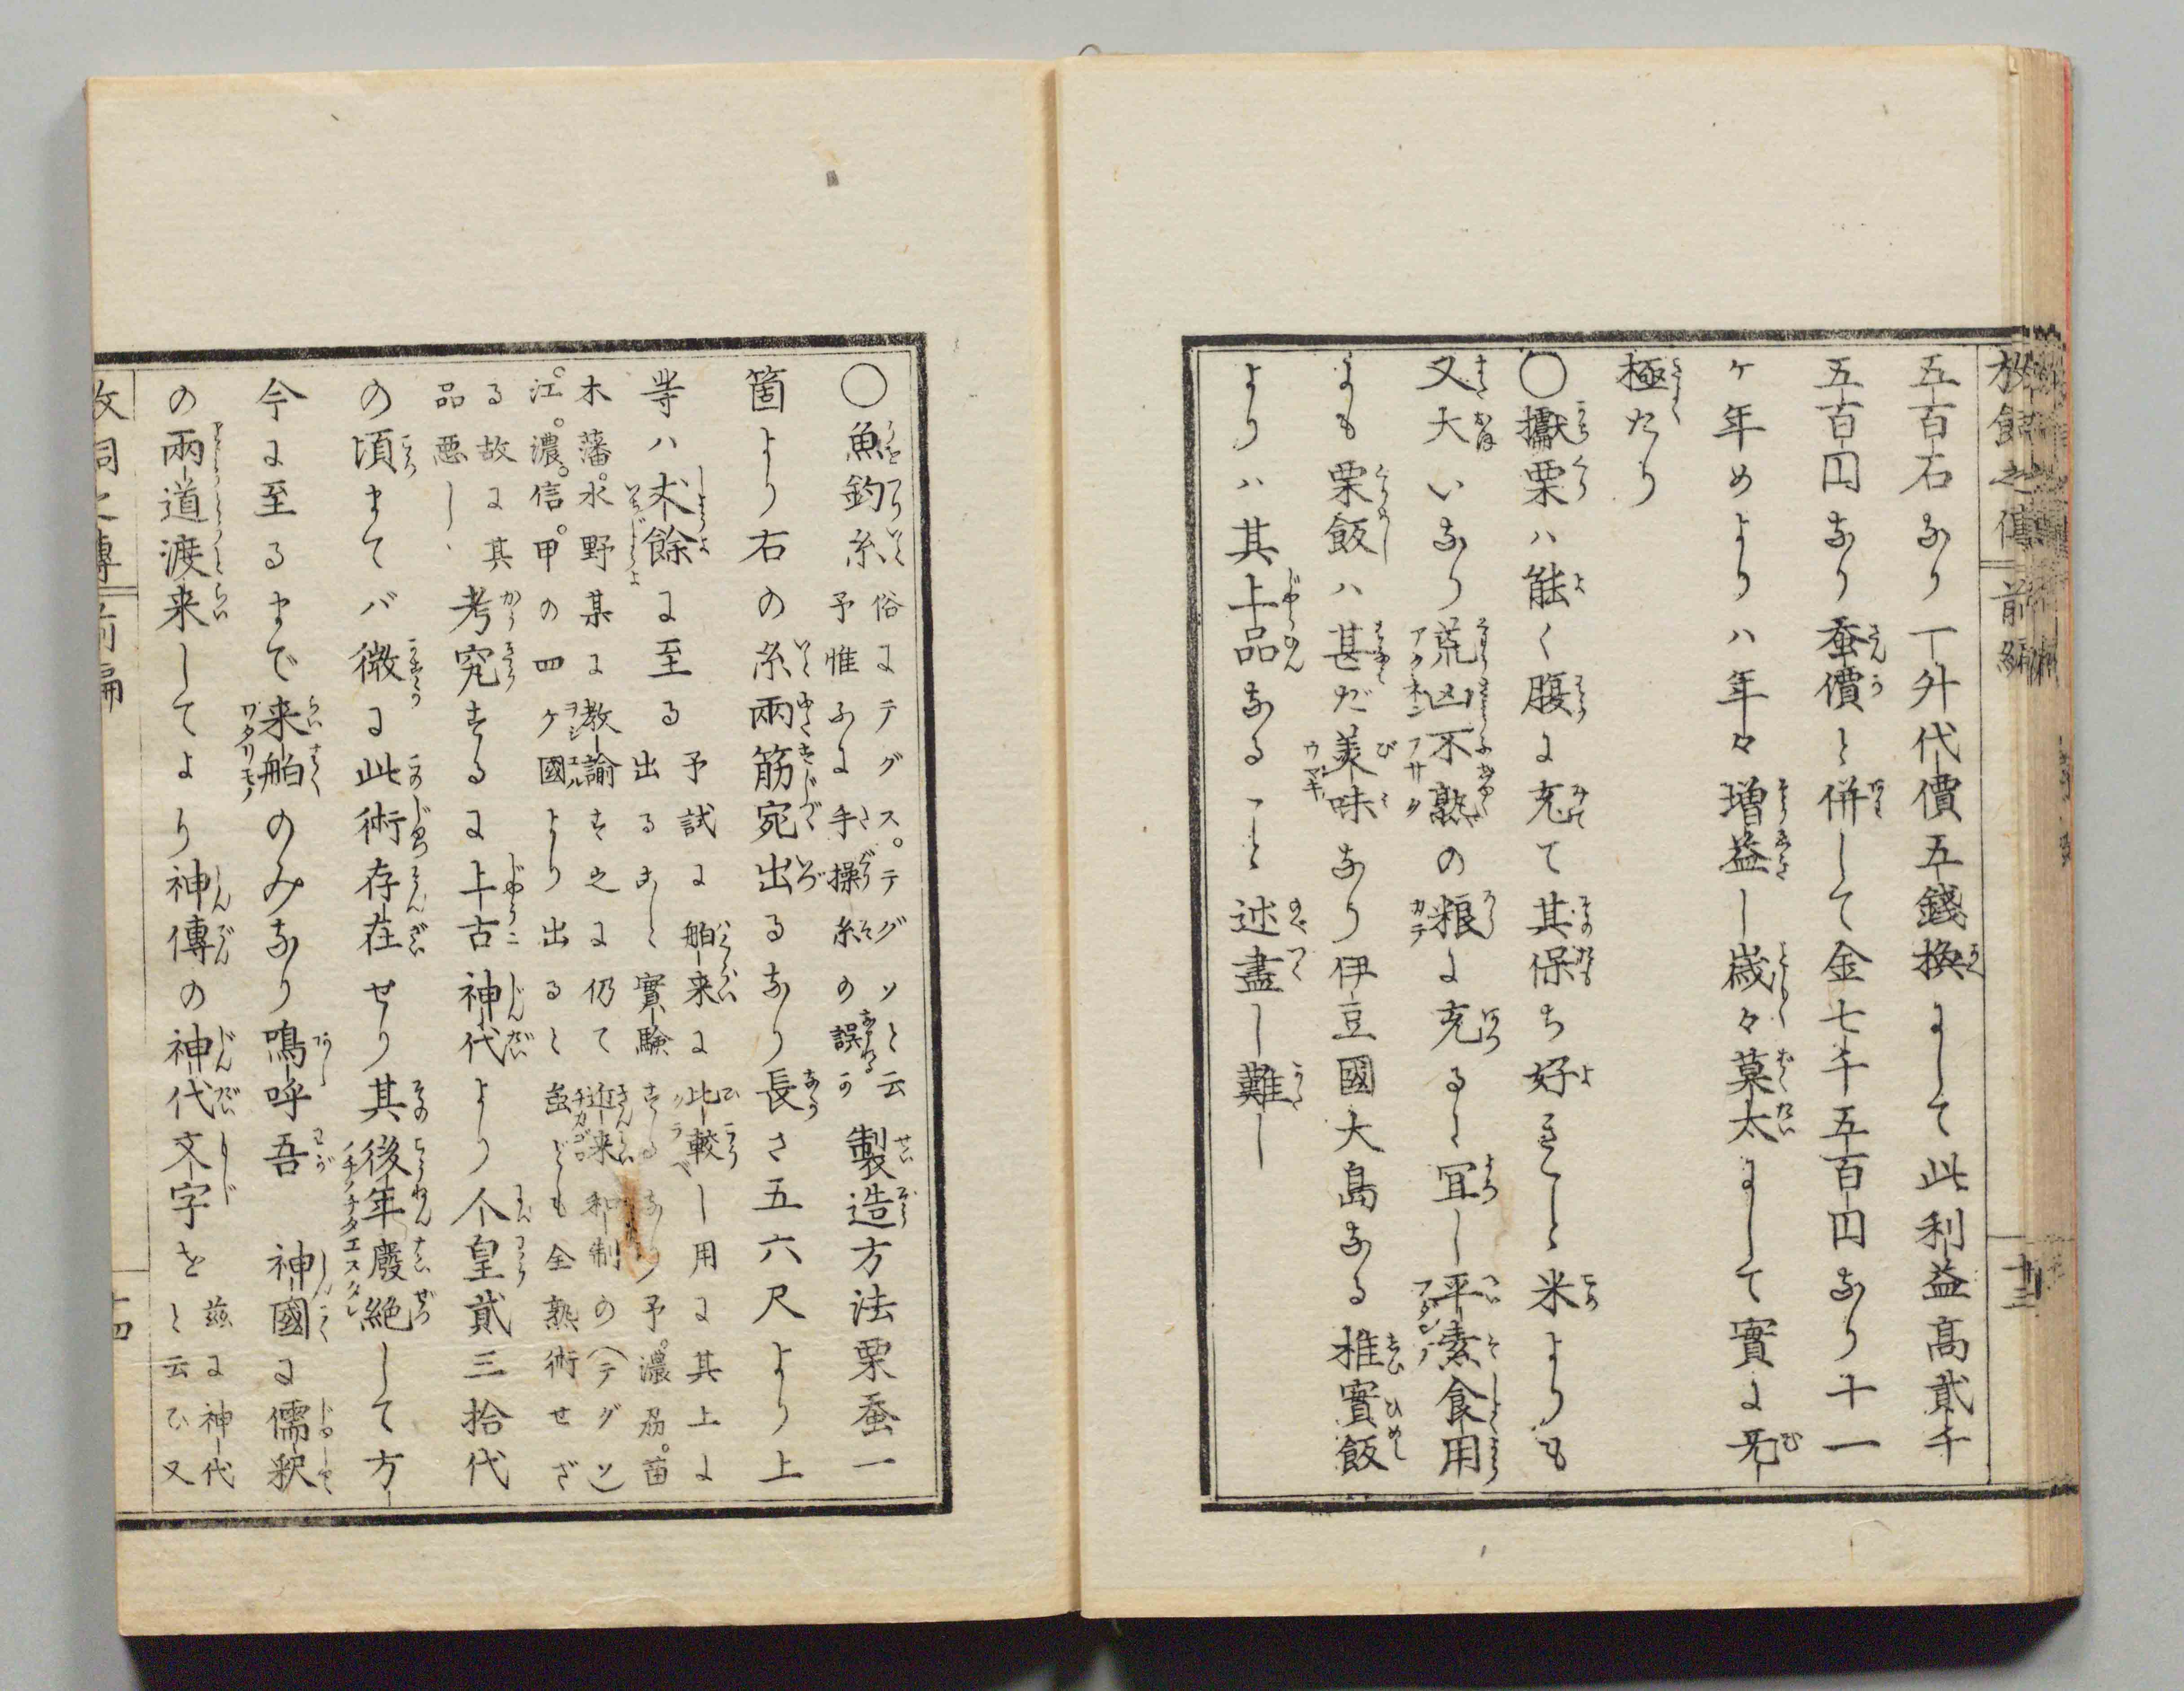 五百石なり一升代價五錢換にして此利益高貳千
五百円なり蚕價と併して金七千五百円なり十一
ケ年めよりハ年々増益し歳々莫太にして實に无
極たり
○獻栗ハ能く腹に充て其保ち好きこと米よりも
又大いなり荒凶不熟の粮に充るに冝し平素食用
にも栗飯ハ甚だ美味なり伊豆國大島なる椎實飯
よりハ其上品なること述盡し難し
前編
十三
○魚釣糸俗にテグス。テグソと云
予惟ふに手操糸の誤か製造方法栗蚕一
箇より右の糸兩筋宛出るなり長さ五六尺より上
等ハ丈餘に至る予試に舶来に比較し用に其上に
出ること實驗するなり予。濃刕。苗
木藩。水野某に教諭す之に仍て近来和制の(テグソ)
江。濃。信。甲の四ケ國より出ると虽ども全熟術せざ
る故に其
品悪し、考究するに上古神代より人皇貳三拾代
の頃まてバ微に此術存在せり其後年廢絶して方
今に至るまで来舶のみなり鳴呼吾 神國に儒釈
の兩道渡来してより神傳の神代文字を茲に神代
と云ひ又
牧飼之傳 前編
十四